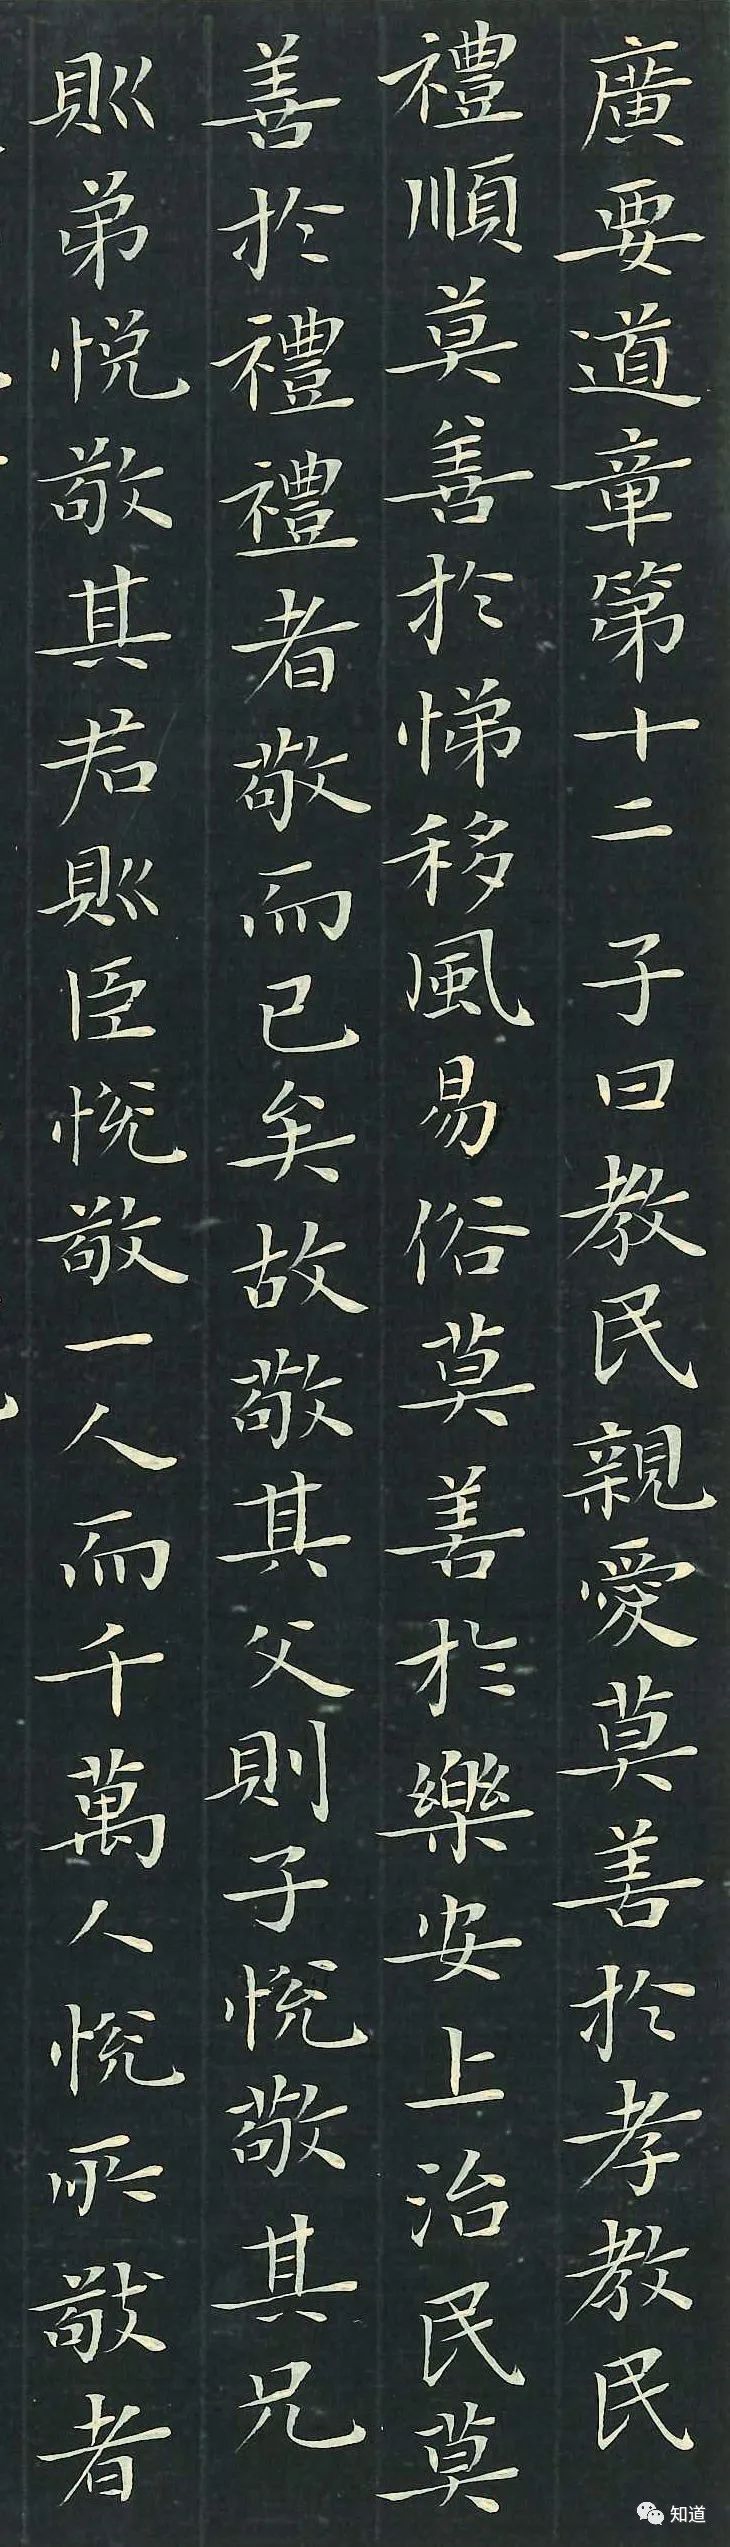 廣要道章第十二 子曰教民親愛莫善於孝教民
禮順莫善於悌移風易俗莫善於樂安上治民莫
善於禮禮者敬而已矣故敬其父則子悅敬其兄
則弟悅敬其君則臣悅敬一人而千萬人悅所敬者
知道